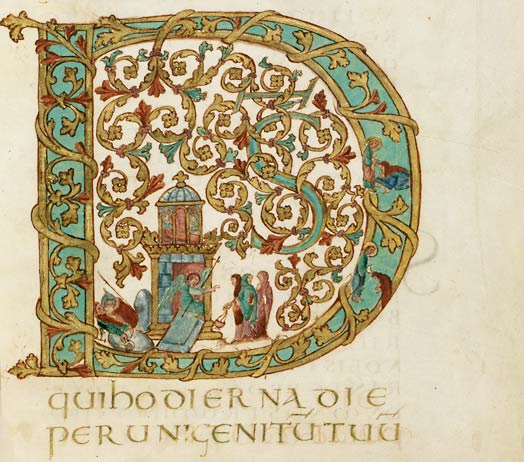 D̄S
QUI HODIERNA DIE
PER UNIGENITŪ TUŪ